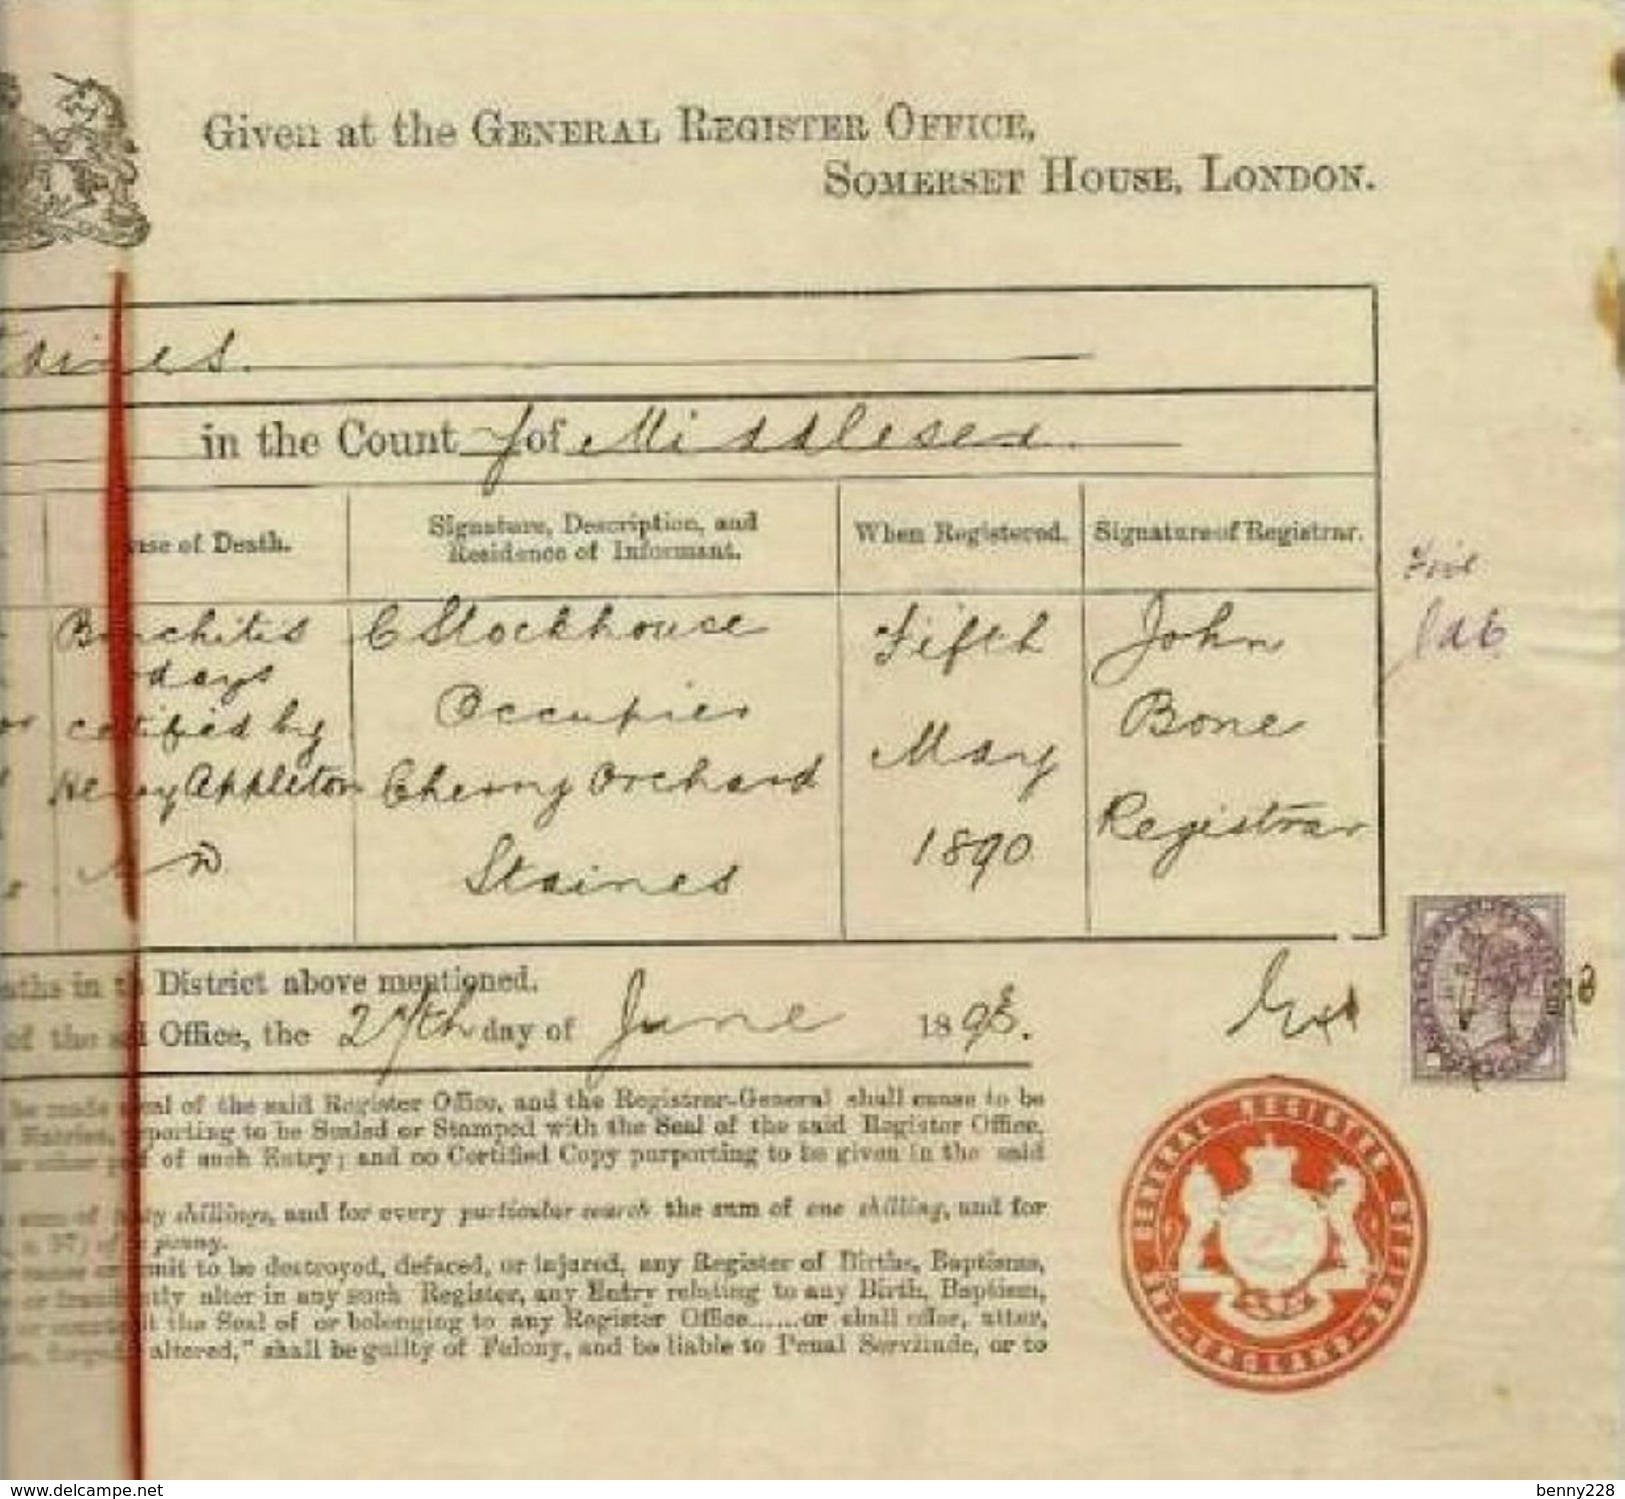 Given at the GENERAL REGISTER OFFICE,
SOMERSET HOUSE, LONDON.
aines.
in the County of Middlesex.
use of Death.
Signature, Description, and
Residence of Informant.
When Registered.
Signature of Registrar.
Bronchitis
days
certified by
Henry Appleton
M D
C Stockhouse
Occupier
Cherry Orchard
Staines
Fifth
May
1890
John
Bone
Registrar
aths in District above mentioned.
of the Office, the 27th day of June 1893.
Ext
be made eal of the said Register Office, and the Registrar-General shall cause to be
Entries, purporting to be Sealed or Stamped with the Seal of the said Register Office,
of such Entry; and no Certified Copy purporting to be given in the said
sum of shillings, and for every particular search the sum of one shilling, and for
of a penny.
mit to be destroyed, defaced, or injured, any Register of Births, Baptisms,
alter in any such Register, any Entry relating to any Birth, Baptism,
the Seal of or belonging to any Register Office......or shall offer, utter,
altered," shall be guilty of Felony, and be liable to Penal Servitude, or to
GENERAL REGISTER OFFICE
ENGLAND
www.delcampe.net
benny228